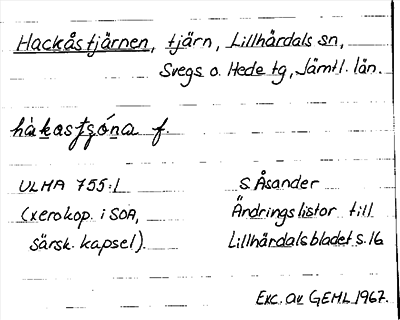 Hackåstjärnen, tjärn, Lillhärdals sn,
Svegs o. Hede tg, Jämtl. län.
hàkastjó̱na f.
ULMA 755:1
(xerokop. i SOA,
särsk. kapsel).
S. Åsander
Ändringslistor till
Lillhärdalsbladet s. 16
Exc. av GEHL 1967.